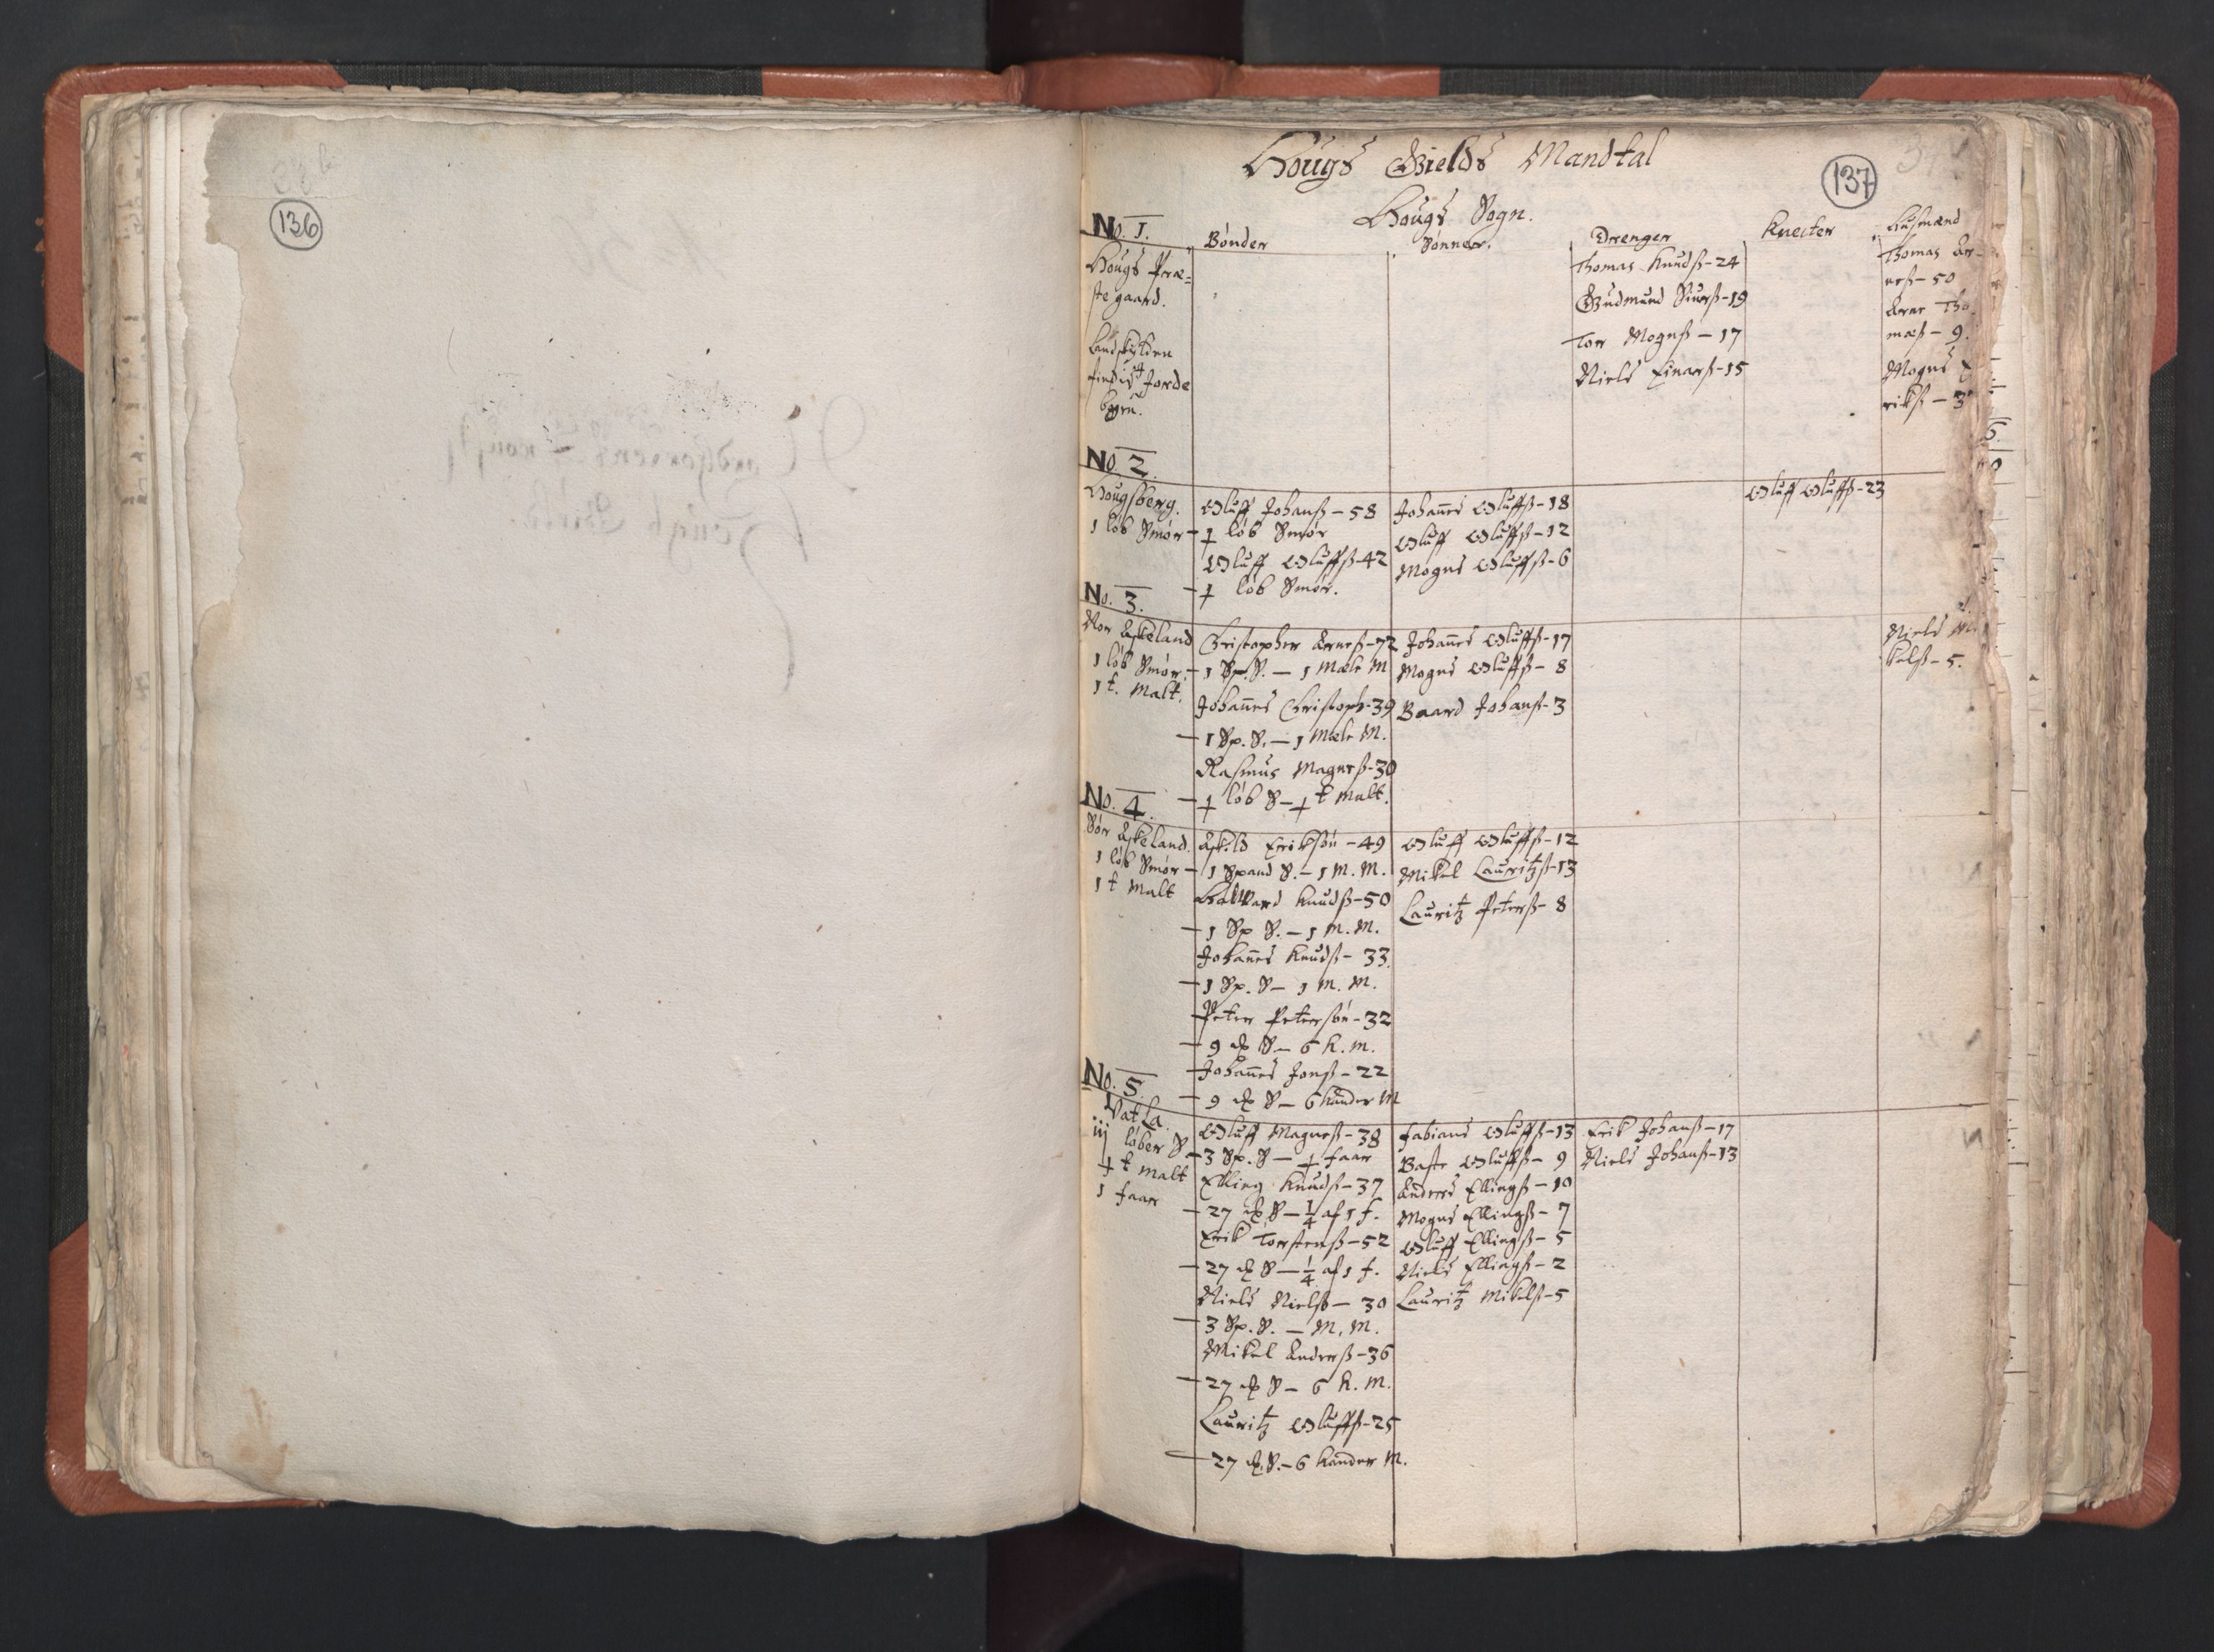 136
Hougs Gields Mandtal
137
Hougs Sogn.
No. 1. Bønder Sønner. Drenger Knecter Husmænd
Hougs Præ-
ste gaard.
Landskylden
findis J Jorde
bogen.
Thomas Knudß - 24
Gudmund Siverß - 19
Torr Mognß - 17
Niels Einarß - 15
Thomas Ar-
neß - 50
Arne Tho
maß - 9.
Mogns E
rikß - 3
No. 2.
Hougsberg.
1 løb Smør
Oluff Johanß - 58
½ løb Smør
Oluff Oluffß - 42
½ løb Smør.
Johañes Oluffß - 18
Oluff Oluffß - 12
Mogns Oluffß - 6
Oluff Oluffß - 23
No. 3.
Nor Askeland
1 løb Smør.
1 t. Malt.
Christopher Arneß - 72
1 Sp. S. — 1 Mæle M
Johañes Christoph - 39
1 Sp. S. — 1 Mæle M.
Rasmus Magneß - 30
½ løb S — ½ t Malt.
Johañes Oluffß - 17
Mogns Oluffß - 8
Baard Johanß - 3
Niels Mi
kelß - 5.
No. 4.
Sør Askeland.
1 løb Smør
1 t Malt
Askild Eriksøn - 49
1 Spand S. — 1 M. M.
Halvard Knudß - 50
1 Sp S. — 1 M. M.
Johañes Knudß - 33.
1 Sp. S — 1 M. M.
Peter Petersøn - 32
9 ℔ S — 6 K. M.
Johañes Jonß - 22
9 ℔ S — 6 Kander M
Oluff Oluffß - 12
Mikel Lauritzß - 13
Lauritz Peterß - 8
No. 5.
Vatla.
iij løber S
½ t Malt
1 faar
Oluff Magneß - 38
3 Sp. S — ½ faar
Elling Knudß - 37
27 ℔ S — ¼ af 1 f.
Erik Torstenß - 52
27 ℔ S — ¼ af 1 f.
Niels Nielß — 30
3 Sp. S. — M. M.
Mikel Anderß - 36
27 ℔ S — 6 K. M.
Lauritz Oluffß - 25
27 ℔. S. — 6 Kander M.
Fabians Oluffß - 13
Baste Oluffß - 9
Anders Ellingß - 10
Mogns Ellingß - 7
Oluff Ellingß - 5
Niels Ellingß - 2
Lauritz Mikelß - 5
Erik Johanß - 17
Niels Johanß - 13